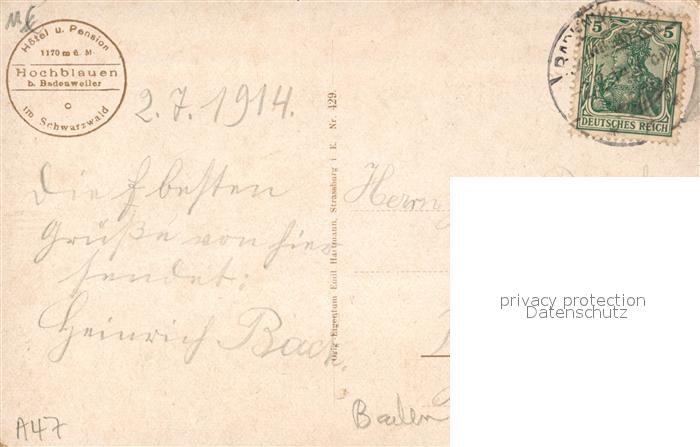 ME
Hôtel u. Pension
1170 m ü. M.
Hochblauen
b. Badenweiler
im Schwarzwald
2.7.1914.
Die besten
Grüße von hier
sendet:
Heinrich Back.
A47
Orig. Eigentum Emil Hartmann, Strassburg i. E. Nr. 429.
5 5
DEUTSCHES REICH
Herrn
Baden
privacy protection
Datenschutz